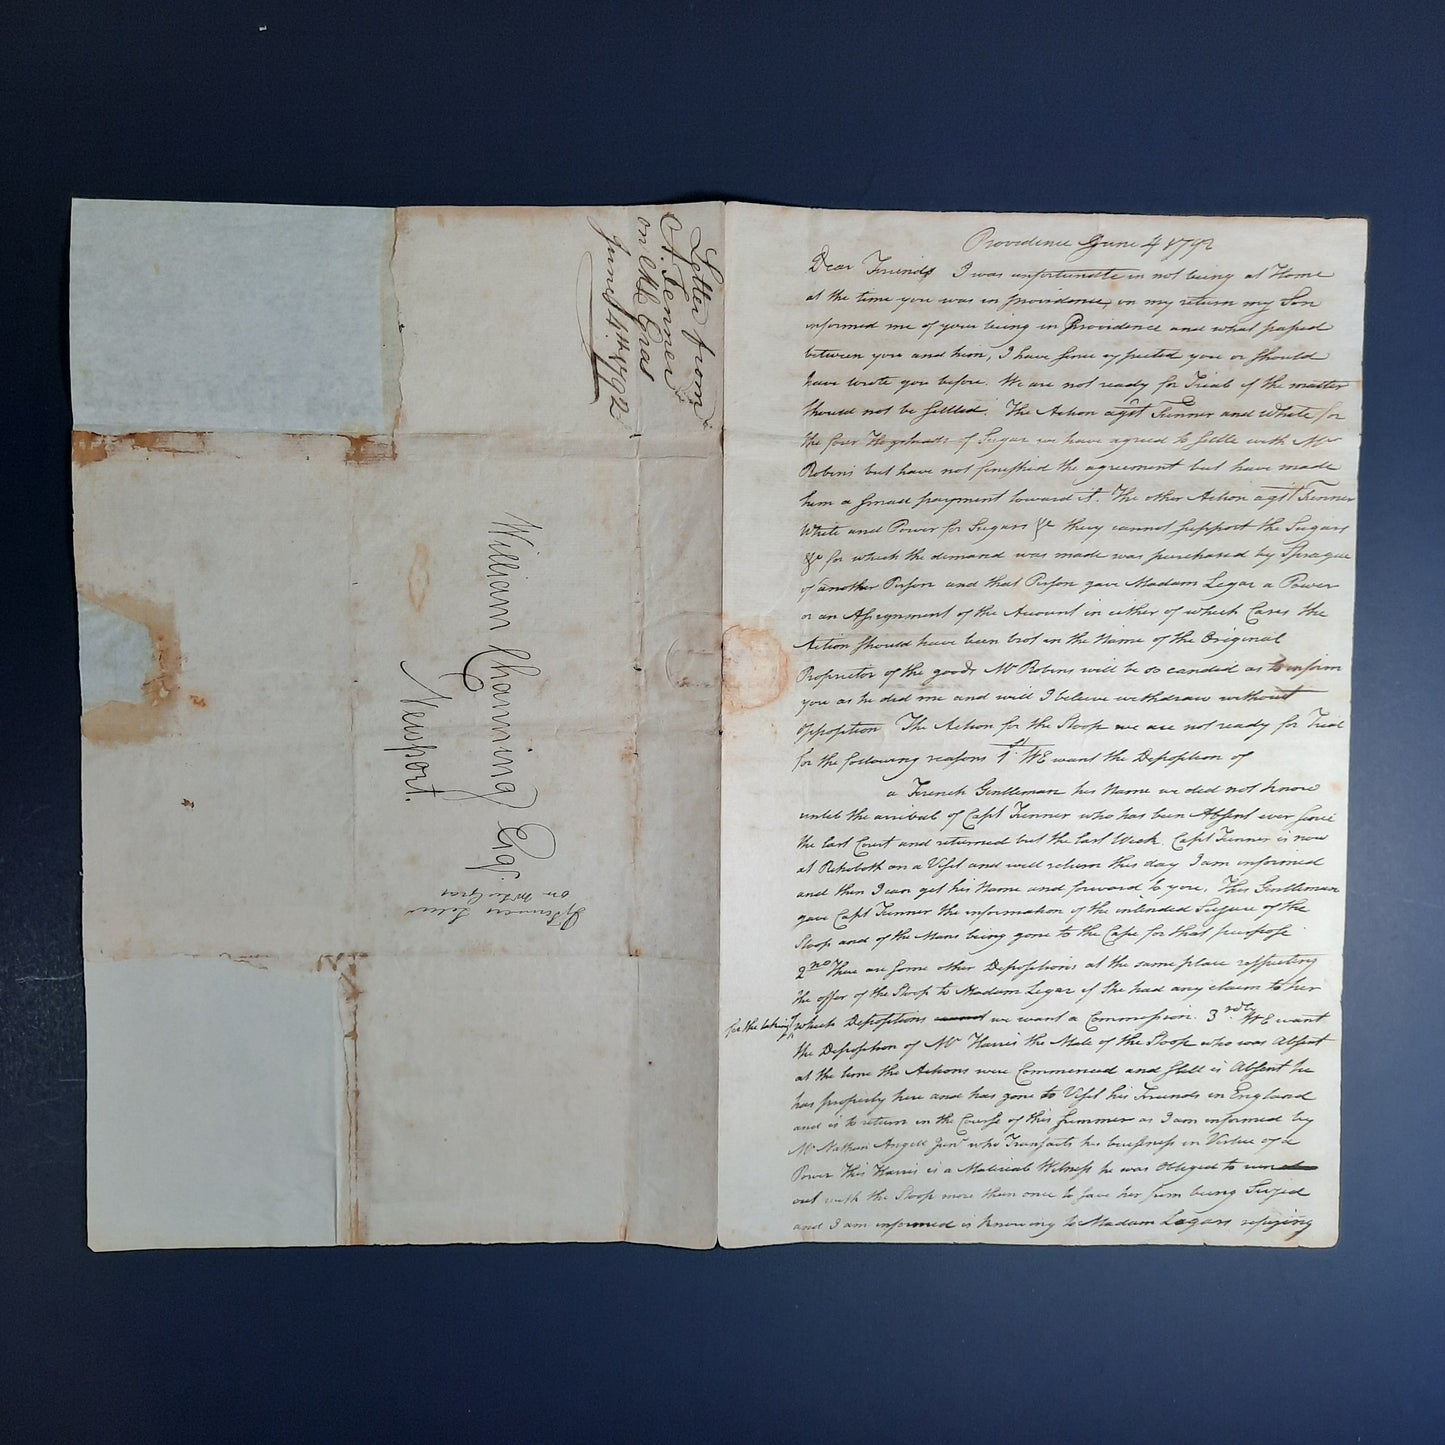 Providence June 4 1792
Dear Friend I was unfortunate in not being at Home
at the time you was in providence, on my return my Son
informed me of your being in Providence and what passed
between you and him, I have since expected you or should
have wrote you before. We are not ready for Trial if the matter
should not be settled. The Action agst Fenner and White for
the four Hogsheads of Sugar we have agreed to settle with Mr
Robins but have not finished the agreement but have made
him a small payment toward it. The other Action agst Fenner
White and Power for Sugars &c they cannot support the Sugars
&c for which the demand was made was purchased by Sprague
of another Person and that Person gave Madam Legar a Power
or an Assignment of the Account in either of which Cases the
Action should have been brot in the Name of the Original
Proprietor of the goods Mr Robins will be so canded as to inform
you as he did me and will I believe withdraw without
opposition The Action for the Sloop we are not ready for Trial
for the following reasons 1st WE want the Deposition of
a French Gentleman his Name we did not know
until the arrival of Capt Fenner who has been Absent ever since
the last Court and returned but the last Week. Capt Fenner is now
at Rehoboth on a Visit and will return this day I am informed
and then I can get his Name and forward to you. This Gentleman
gave Capt Fenner the information of the intended Seizure of the
Sloop and of the Mans being gone to the Cape for that purpose
2nd There are some other Depositions at the same place respecting
the offer of the Sloop to Madam Legar if She had any claim to her
for the taking which Depositions we want a Commission. 3rdly WE want
the Deposition of Mr Harris the Mate of the Sloop who was Absent
at the time the Actions were Commenced and still is Absent he
has property here and has gone to Visit his Friends in England
and is to return in the Course of this Summer as I am informed by
Mr Nathan Angell Junr who Transacts his business in Virtue of a
Power This Harris is a Material Witness he was Obliged to
out with the Sloop more then once to save her from being Seized
and I am informed is knowing to Madam Legars refusing
Letter from
A. Fenner
on Md Gras
June 4th 1792
William Channing Esqr
Newport.
Fenners Letter
on